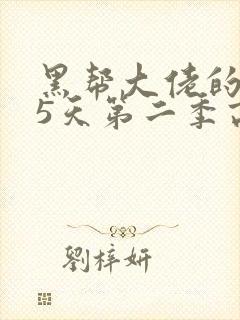 黑帮大佬的
5天第二季
劉梓妍